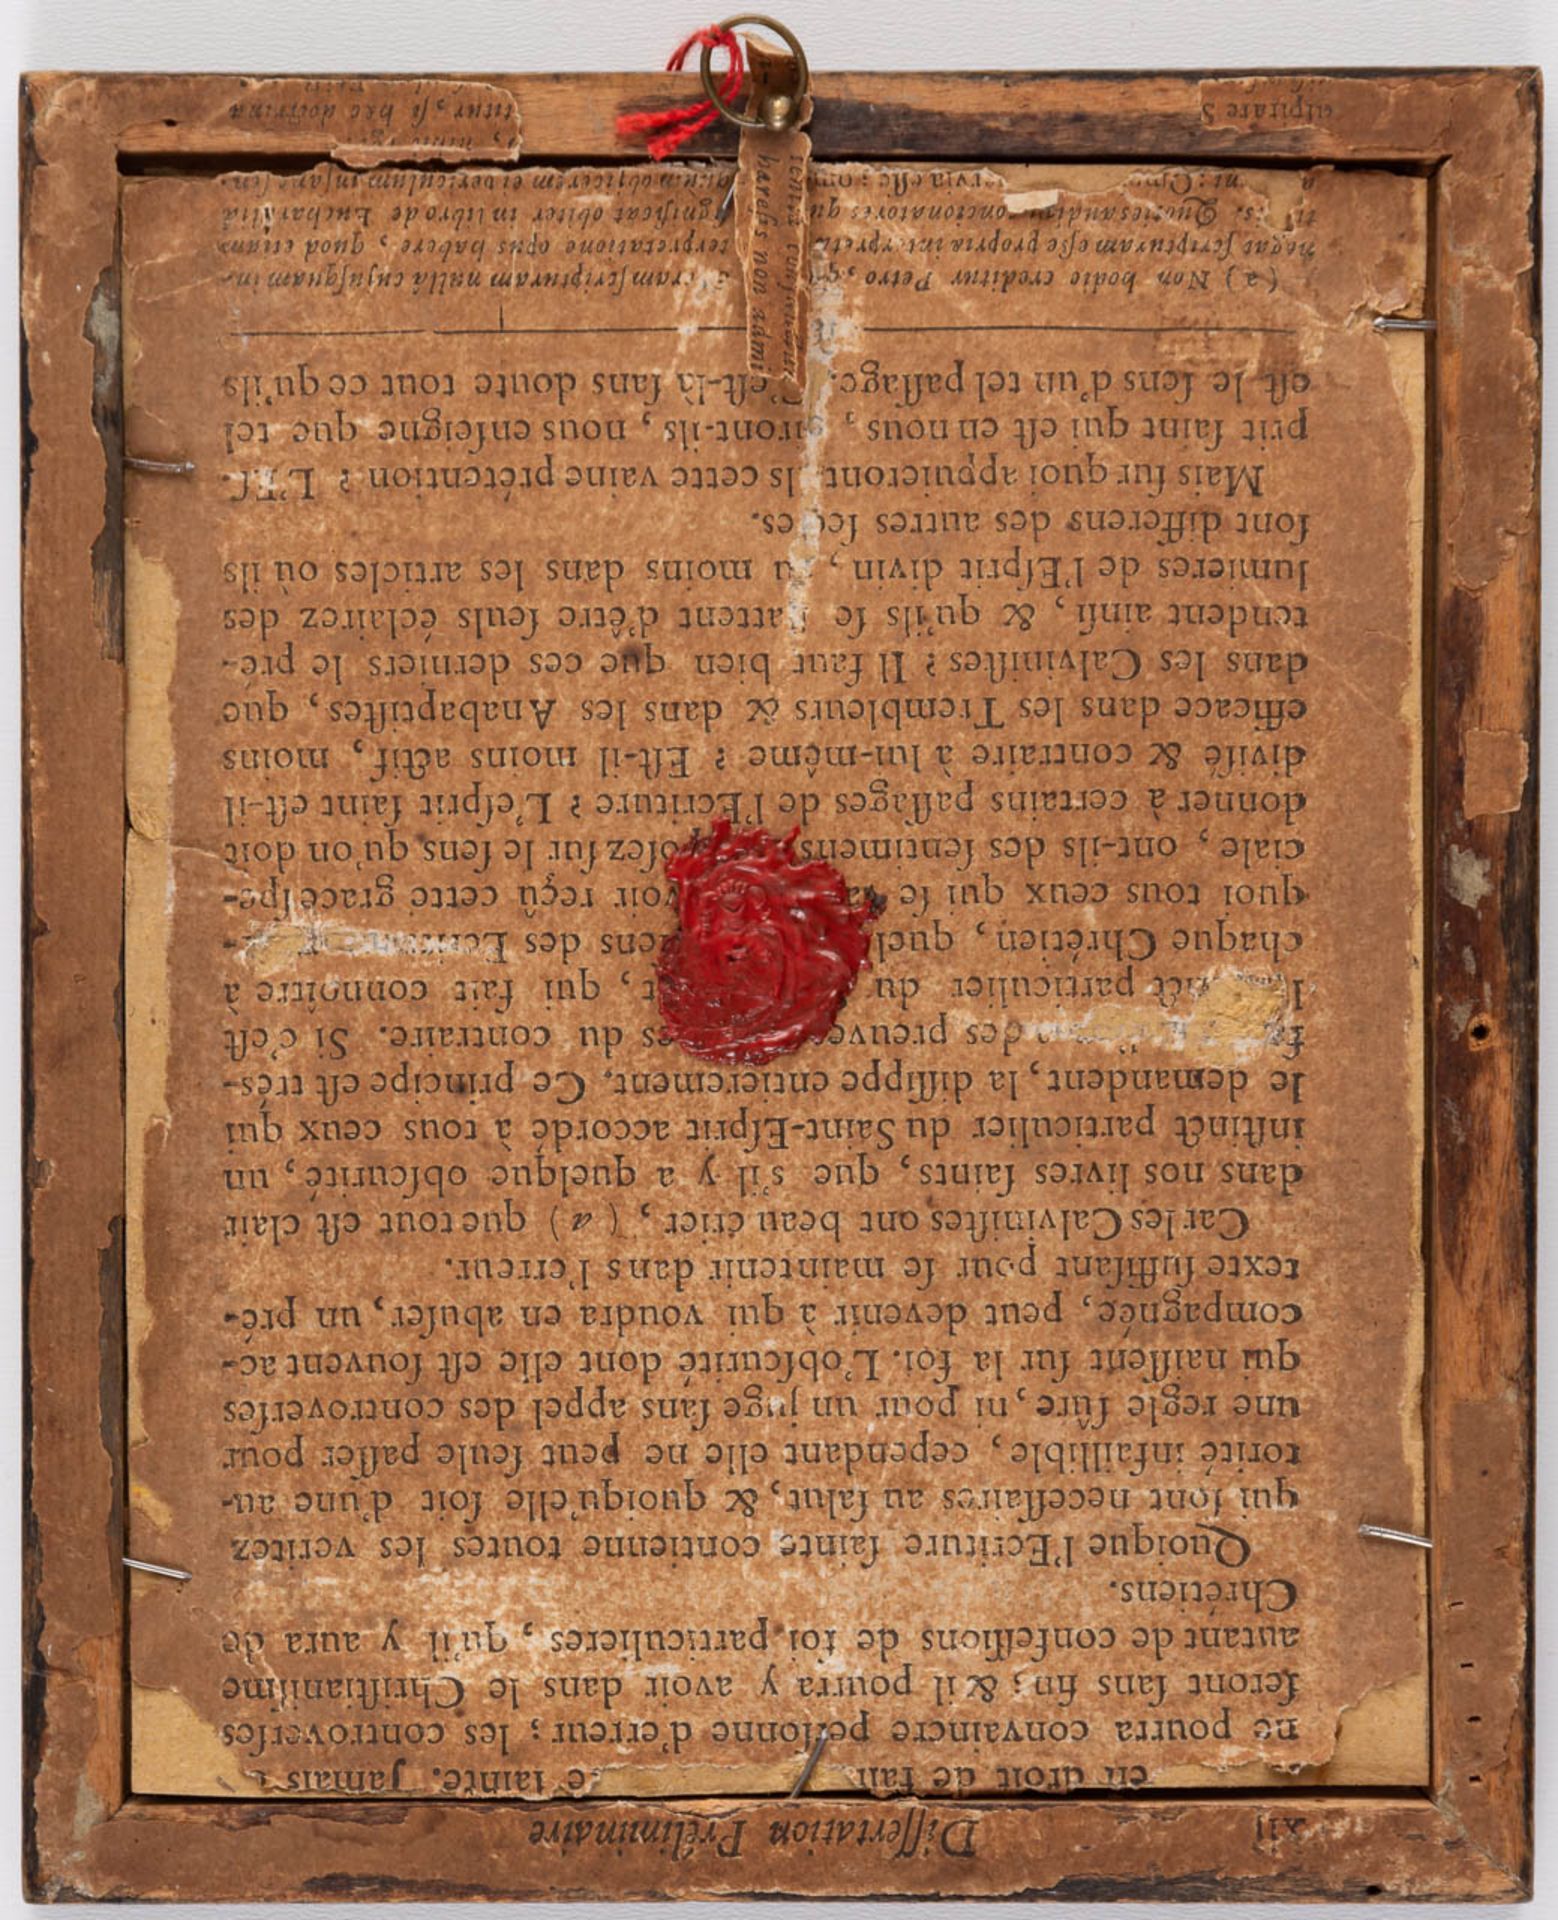 xij Dissertation Préliminaire
en droit de fai ſe ſainte. jamais
ne pourra convaincre perſonne d'erreur ; les controverſes
ſeront ſans fin ; & il pourra y avoir dans le Chriſtianiſme
autant de confeſſions de foi particulieres, qu'il y aura de
Chrétiens.
Quoique l'Ecriture ſainte contienne toutes les veritez
qui ſont neceſſaires au ſalut, & quoiqu'elle ſoit d'une au-
torité infaillible, cependant elle ne peut ſeule paſſer pour
une regle ſûre, ni pour un juge ſans appel des controverſes
qui naiſſent ſur la foi. L'obſcurité dont elle eſt ſouvent ac-
compagnée, peut devenir à qui voudra en abuſer, un pré-
texte ſuffiſant pour ſe maintenir dans l'erreur.
Car les Calviniſtes ont beau crier, (a) que tout eſt clair
dans nos livres ſaints, que s'il y a quelque obſcurité, un
inſtinct particulier du Saint-Eſprit accordé à tous ceux qui
le demandent, la diſſippe entierement. Ce principe eſt trés-
des preuve es du contraire. Si c'eſt
particulier du qui fait connoître à
chaque Chrétien, quel des
quoi tous ceux qui ſe voir reçû cette grace ſpe-
ciale, ont-ils des ſentimens oſez ſur le ſens qu'on doit
donner à certains paſſages de l'Ecriture ? L'eſprit ſaint eſt-il
diviſé & contraire à lui-même ? Eſt-il moins actif, moins
efficace dans les Trembleurs & dans les Anabaptiſtes, que
dans les Calviniſtes ? Il faut bien que ces derniers le pré-
tendent ainſi, & qu'ils ſe flattent d'être ſeuls éclairez des
lumieres de l'Eſprit divin, du moins dans les articles où ils
ſont differens des autres ſectes.
Mais ſur quoi appuieront-ils cette vaine prétention ? L'Eſ-
prit ſaint qui eſt en nous, diront-ils, nous enſeigne que tel
eſt le ſens d'un tel paſſage. C'eſt-là ſans doute tout ce qu'ils
(a) Non hodie creditur Petro, ſcripturam nullâ cujuſquam in-
negat ſcripturam eſſe propria interpreta terpretatione opus habere, quod etiam
Quoties audiunt concionatores ſignificat obiter in libro de Euchariſtiâ
pervia eſſe quin objicerem ei periculum
titur, ſi hec doctrina
ſenti
hareſis non admi